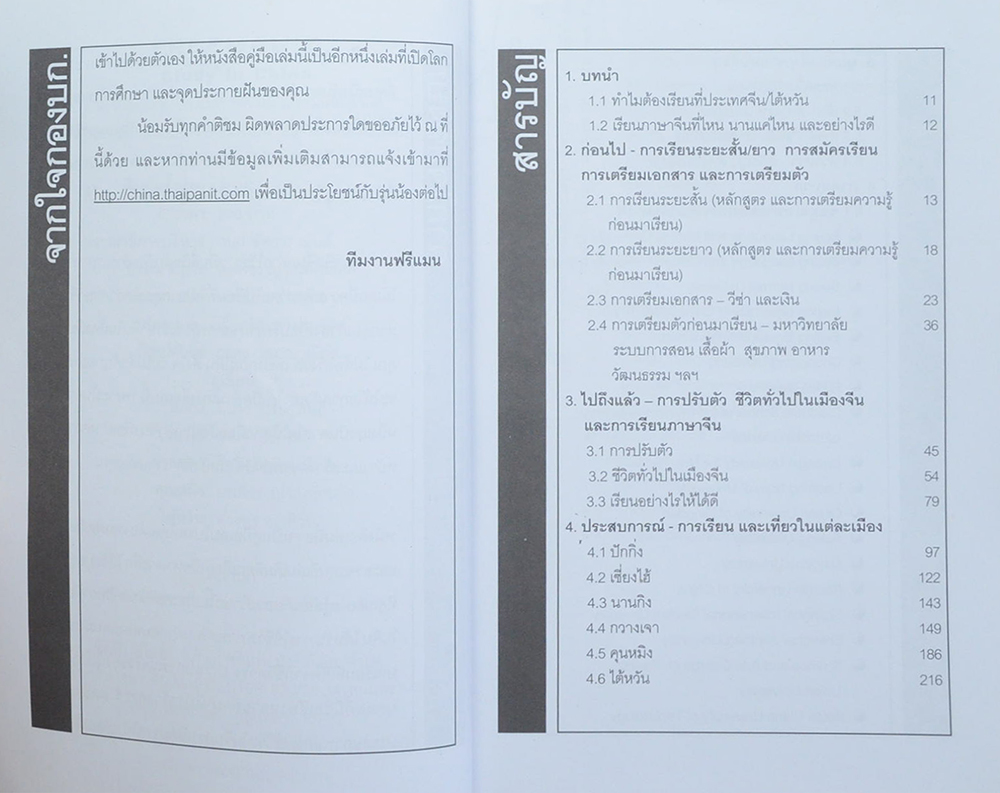 จากใจกองบก.
เข้าไปด้วยตัวเอง ให้หนังสือคู่มือเล่มนี้เป็นอีกหนึ่งเล่มที่เปิดโลก
การศึกษา และจุดประกายฝันของคุณ
น้อมรับทุกคำติชม ผิดพลาดประการใดขออภัยไว้ ณ ที่
นี้ด้วย และหากท่านมีข้อมูลเพิ่มเติมสามารถแจ้งเข้ามาที่
http://china.thaipanit.com เพื่อเป็นประโยชน์กับรุ่นน้องต่อไป
ทีมงานฟรีแมน
สารบัญ
1. บทนำ
1.1 ทำไมต้องเรียนที่ประเทศจีน/ไต้หวัน 11
1.2 เรียนภาษาจีนที่ไหน นานแค่ไหน และอย่างไรดี 12
2. ก่อนไป - การเรียนระยะสั้น/ยาว การสมัครเรียน
การเตรียมเอกสาร และการเตรียมตัว
2.1 การเรียนระยะสั้น (หลักสูตร และการเตรียมความรู้ 13
ก่อนมาเรียน)
2.2 การเรียนระยะยาว (หลักสูตร และการเตรียมความรู้ 18
ก่อนมาเรียน)
2.3 การเตรียมเอกสาร – วีซ่า และเงิน 23
2.4 การเตรียมตัวก่อนมาเรียน – มหาวิทยาลัย 36
ระบบการสอน เสื้อผ้า สุขภาพ อาหาร
วัฒนธรรม ฯลฯ
3. ไปถึงแล้ว – การปรับตัว ชีวิตทั่วไปในเมืองจีน
และการเรียนภาษาจีน
3.1 การปรับตัว 45
3.2 ชีวิตทั่วไปในเมืองจีน 54
3.3 เรียนอย่างไรให้ได้ดี 79
4. ประสบการณ์ - การเรียน และเที่ยวในแต่ละเมือง
4.1 ปักกิ่ง 97
4.2 เซี่ยงไฮ้ 122
4.3 นานกิง 143
4.4 กวางเจา 149
4.5 คุนหมิง 186
4.6 ไต้หวัน 216